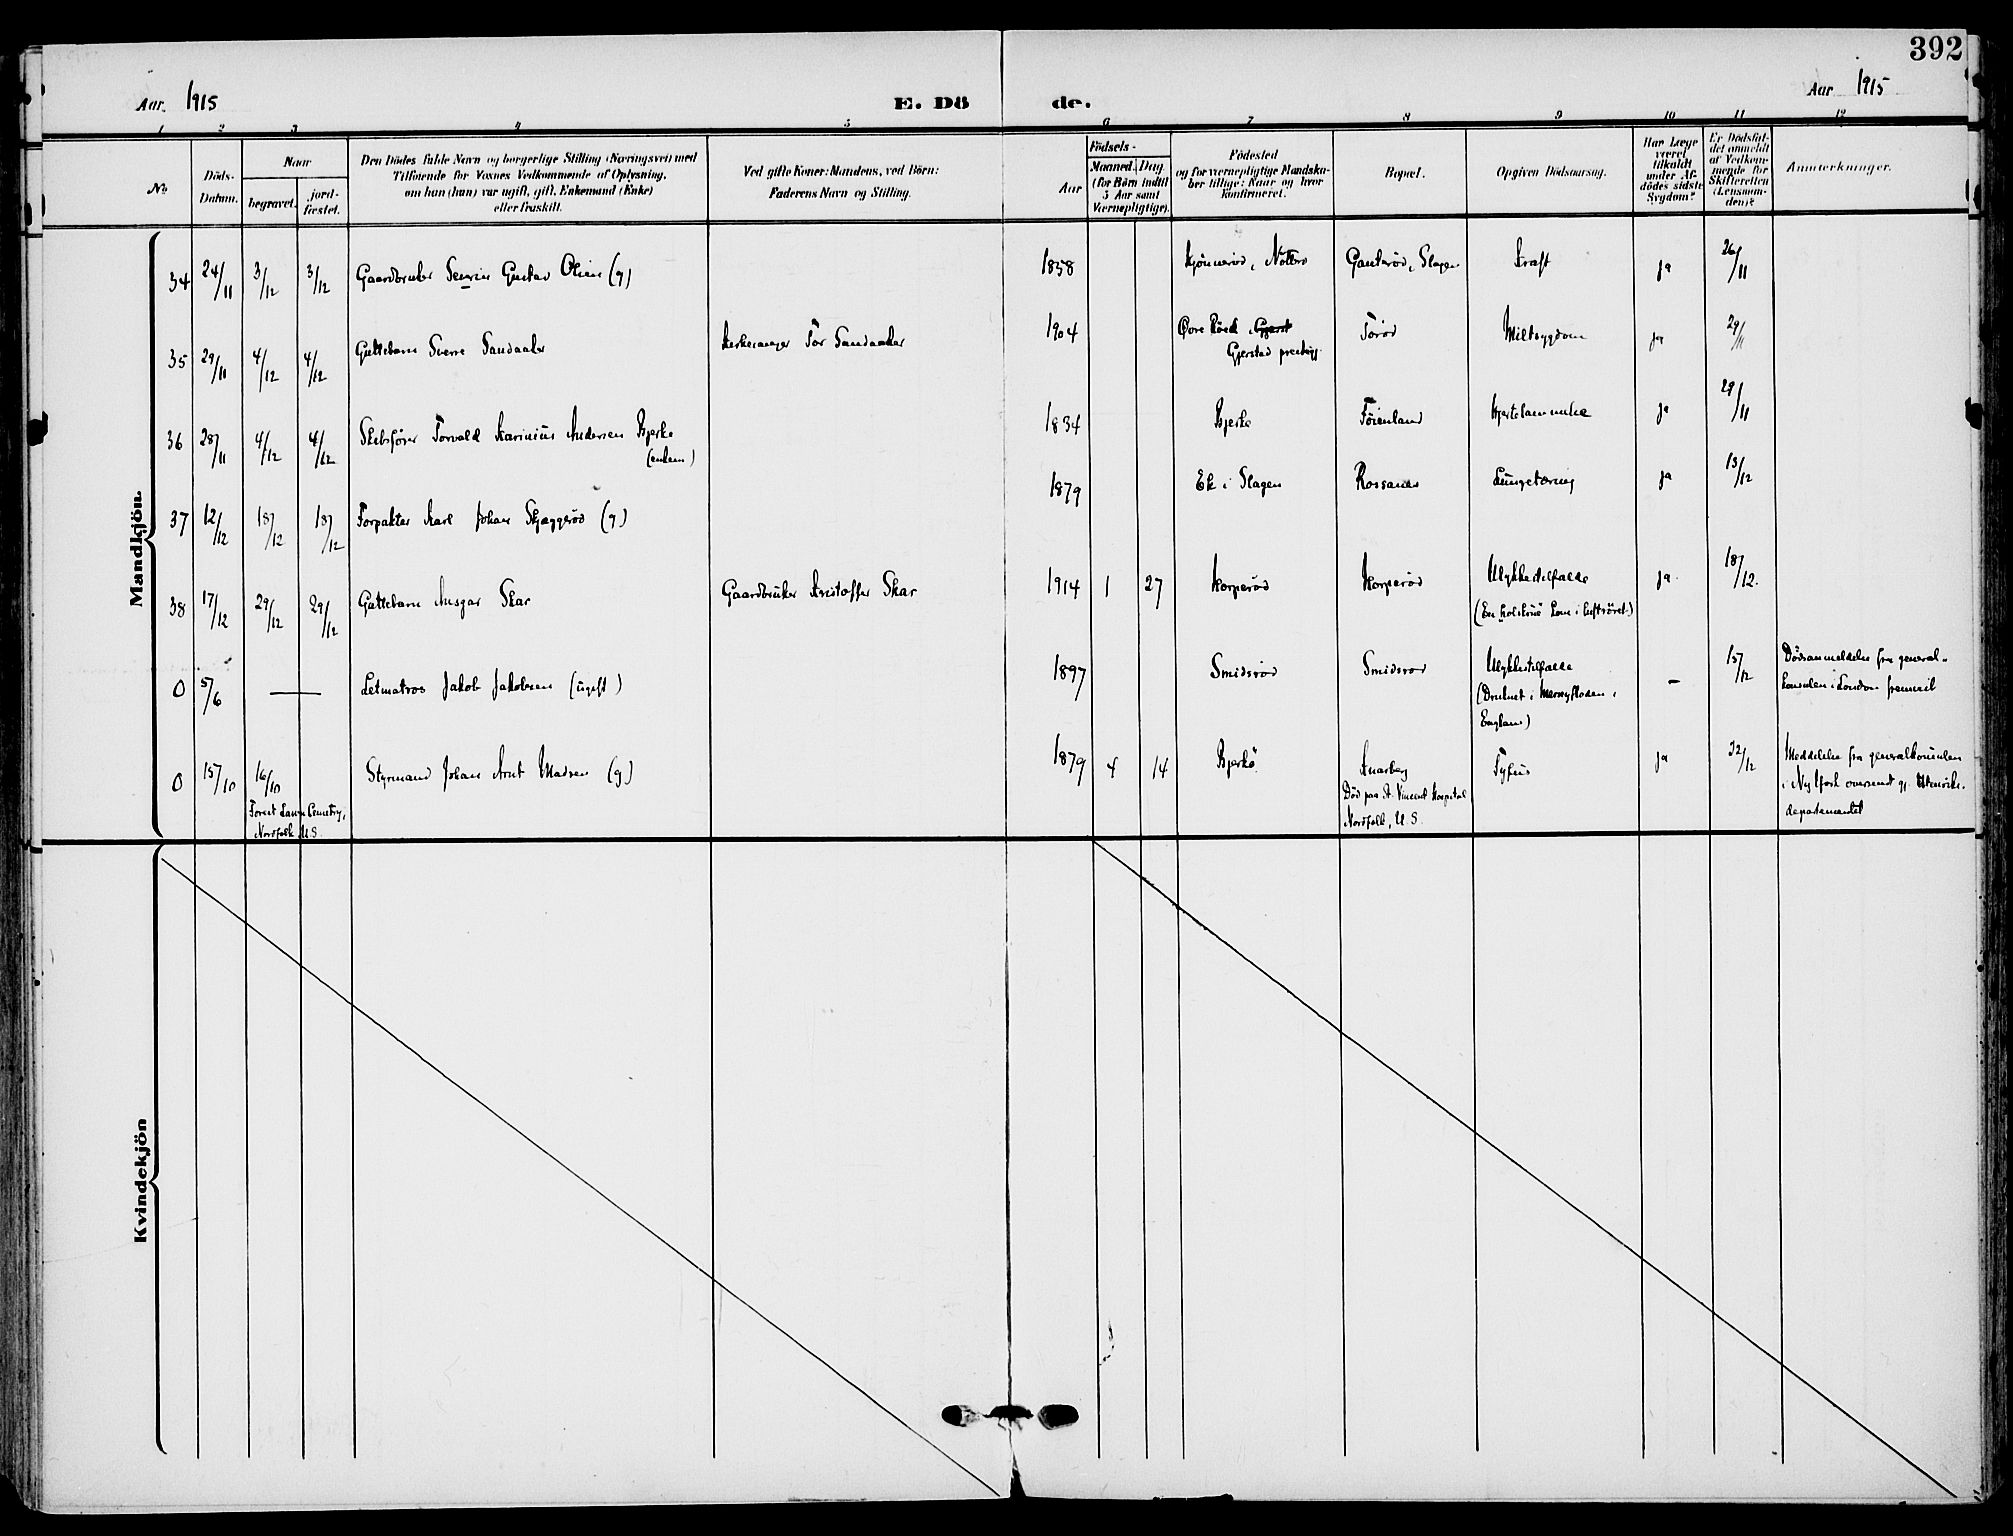 392
Aar. 1915
E. Dö
de.
Aar 1915
1 2 3 4 5 6 7 8 9 10 11 12
No
Döds-
Datum.
Naar
begravet.
jord-
fæstet.
Den Dödes fulde Navn og borgerlige Stilling (Næringsvei) med
Tilföiende for Voxnes Vedkommende af Oplysning,
om hun (han) var ugift, gift, Enkemand (Enke)
eller fraskilt.
Ved gifte Koner: Mandens, ved Börn:
Faderens Navn og Stilling.
Födsels-
Aar
Maaned.
Dag
(for Börn indtil
5 Aar samt
Værnepligtige).
Födested
og for værnepligtige Mandska-
ber tillige: Naar og hvor
konfirmeret.
Bopæl.
Opgiven Dödsaarsag.
Har Læge
været
tilkaldt
under Af-
dödes sidste
Sygdom?
Er Dödsfal-
det anmeldt
af Vedkom-
mende for
Skifteretten
(Lensman-
den)?
Anmærkninger.
Mandkjön.
34 24/11 3/12 3/12 Gaardbruker Severin Gustav Olsen (g) 1858 Kjönnerød, Nøtterø Gauterød, Slagen Kræft ja 26/11
35 29/11 4/12 4/12 Guttebarn Sverre Sandaaker Kirkesanger Tor Sandaaker 1904 Øvre Röed
Gjerstad prestegj. Torød Miltsygdom ja 29/11
36 28/11 4/12 4/12 Skibsfører Torvald Karinius Andersen Bjerke
(enkem) 1834 Bjerke Føienland Hjertelammelse ja 29/11
37 12/12 18/12 18/12 Forpakter Karl Johan Skjæggerød (g) 1879 Ek i Slagen Rossanes Lungetæring ja 13/12
38 17/12 29/12 29/12 Guttebarn Ansgar Skar Gaardbruker Kristoffer Skar 1914 1 27 Korperød Korperød Ulykkestilfælde
(En kom i luftröret) ja 18/12.
0 5/6 — Letmatros Jakob Jakobsen (ugift) 1897 Smidsrød Smidsrød Ulykkestilfælde
(Druknet i Merseyfloden i
England) – 15/12 Dødsanmeldelse fra general-
konsulen i London fremvist
0 15/10 16/10
Forest Lawn Cemetry,
Norfolk U.S. Styrmand Johan Arnt Madsen (g) 1879 4 14 Bjerkö Knarberg
Død paa St. Vincent Hospital
Norfolk, U.S. Tyfus ja /12 Meddelelse fra generalkonsulen
i New York oversendt gj. Utenriks-
departementet
Kvindekjön